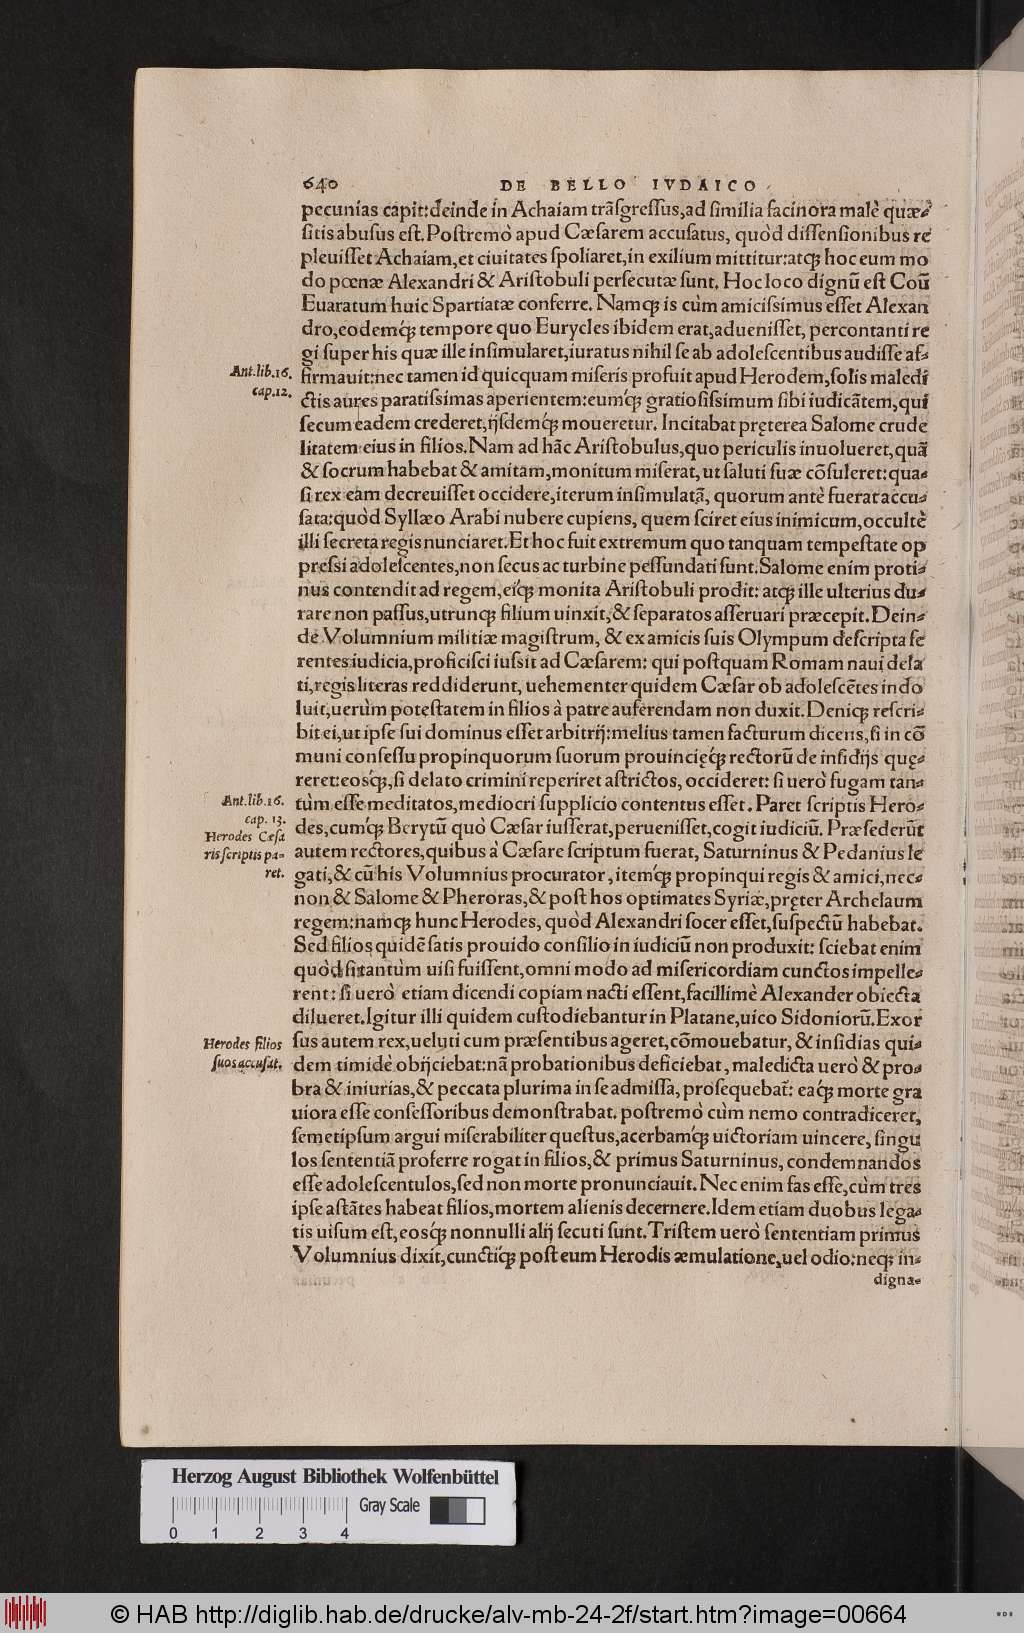 640 DE BELLO IVDAICO
pecunias capit:deinde in Achaiam trãſgreſſus,ad ſimilia facinora malè quæ-
ſitis abuſus eſt.Poſtremò apud Cæſarem accuſatus, quòd diſſenſionibus re
pleuiſſet Achaiam,et ciuitates ſpoliaret,in exilium mittitur:atq; hoc eum mo
do pœnæ Alexandri & Ariſtobuli perſecutæ ſunt. Hoc loco dignũ eſt Coũ
Euaratum huic Spartiatæ conferre. Namq; is cùm amiciſsimus eſſet Alexan
dro,eodemq́; tempore quo Eurycles ibidem erat,adueniſſet, percontanti re
gi ſuper his quæ ille inſimularet,iuratus nihil ſe ab adoleſcentibus audiſſe af-
Ant.lib.16.
cap.12.
firmauit:nec tamen id quicquam miſeris profuit apud Herodem,ſolis maledi
ctis aures paratiſsimas aperientem:eumq́; gratioſiſsimum ſibi iudicãtem,qui
ſecum eadem crederet,ijſdemq́; moueretur. Incitabat pręterea Salome crude
litatem eius in filios.Nam ad hãc Ariſtobulus,quo periculis inuolueret,quã
& ſocrum habebat & amitam,monitum miſerat,ut ſaluti ſuæ cõſuleret:qua-
ſi rex eam decreuiſſet occidere,iterum inſimulatã, quorum antè fuerat accu-
ſata:quòd Syllæo Arabi nubere cupiens, quem ſciret eius inimicum,occultè
illi ſecreta regis nunciaret.Et hoc fuit extremum quo tanquam tempeſtate op
preſsi adoleſcentes,non ſecus ac turbine peſſundati ſunt.Salome enim proti-
nus contendit ad regem,eiq́; monita Ariſtobuli prodit: atq; ille ulterius du-
rare non paſſus,utrunq; filium uinxit,& ſeparatos aſſeruari præcepit.Dein-
de Volumnium militiæ magiſtrum, & ex amicis ſuis Olympum deſcripta fe
rentes iudicia,proficiſci iuſsit ad Cæſarem: qui poſtquam Romam naui dela
ti,regis literas reddiderunt, uehementer quidem Cæſar ob adoleſcẽtes indo
luit,uerùm poteſtatem in filios à patre auferendam non duxit.Deniq; reſcri-
bit ei,ut ipſe ſui dominus eſſet arbitrij:melius tamen facturum dicens,ſi in cõ
muni conſeſſu propinquorum ſuorum prouincięq́; rectorũ de inſidijs quę-
reret:eosq́;,ſi delato crimini reperiret aſtrictos, occideret: ſi uerò fugam tan-
Ant.lib.16.
cap. 13.
Herodes Cæſa
ris ſcriptis pa-
ret.
tùm eſſe meditatos,mediocri ſupplicio contentus eſſet. Paret ſcriptis Hero-
des,cumq́; Berytũ quò Cæſar iuſſerat,perueniſſet,cogit iudiciũ. Præſederũt
autem rectores,quibus à Cæſare ſcriptum fuerat, Saturninus & Pedanius le
gati,& cũ his Volumnius procurator, itemq́; propinqui regis & amici,nec-
non & Salome & Pheroras,& poſt hos optimates Syriæ,pręter Archelaum
regem:namq; hunc Herodes, quòd Alexandri ſocer eſſet,ſuſpectũ habebat.
Sed filios quidẽ ſatis prouido conſilio in iudiciũ non produxit: ſciebat enim
quòd ſi tantùm uiſi fuiſſent,omni modo ad miſericordiam cunctos impelle-
rent: ſi uerò etiam dicendi copiam nacti eſſent,facillimè Alexander obiecta
dilueret.Igitur illi quidem cuſtodiebantur in Platane,uico Sidoniorũ.Exor
Herodes filios
ſuos accuſat.
ſus autem rex,ueluti cum præſentibus ageret,cõmouebatur, & inſidias qui-
dem timidè obijciebat:nã probationibus deficiebat, maledicta uerò & pro-
bra & iniurias,& peccata plurima in ſe admiſſa, proſequebat᷑: eaq́; morte gra
uiora eſſe confeſſoribus demonſtrabat. poſtremò cùm nemo contradiceret,
ſemetipſum argui miſerabiliter queſtus,acerbamq́; uictoriam uincere, ſingu
los ſententiã proferre rogat in filios,& primus Saturninus, condemnandos
eſſe adoleſcentulos,ſed non morte pronunciauit. Nec enim fas eſſe,cùm tres
ipſe aſtãtes habeat filios,mortem alienis decernere.Idem etiam duobus lega-
tis uiſum eſt,eosq́; nonnulli alij ſecuti ſunt.Triſtem uerò ſententiam primus
Volumnius dixit,cunctiq́; poſt eum Herodis æmulatione,uel odio:neq; in-
digna-
Herzog August Bibliothek Wolfenbüttel
Gray Scale
0 1 2 3 4
© HAB http://diglib.hab.de/drucke/alv-mb-24-2f/start.htm?image=00664